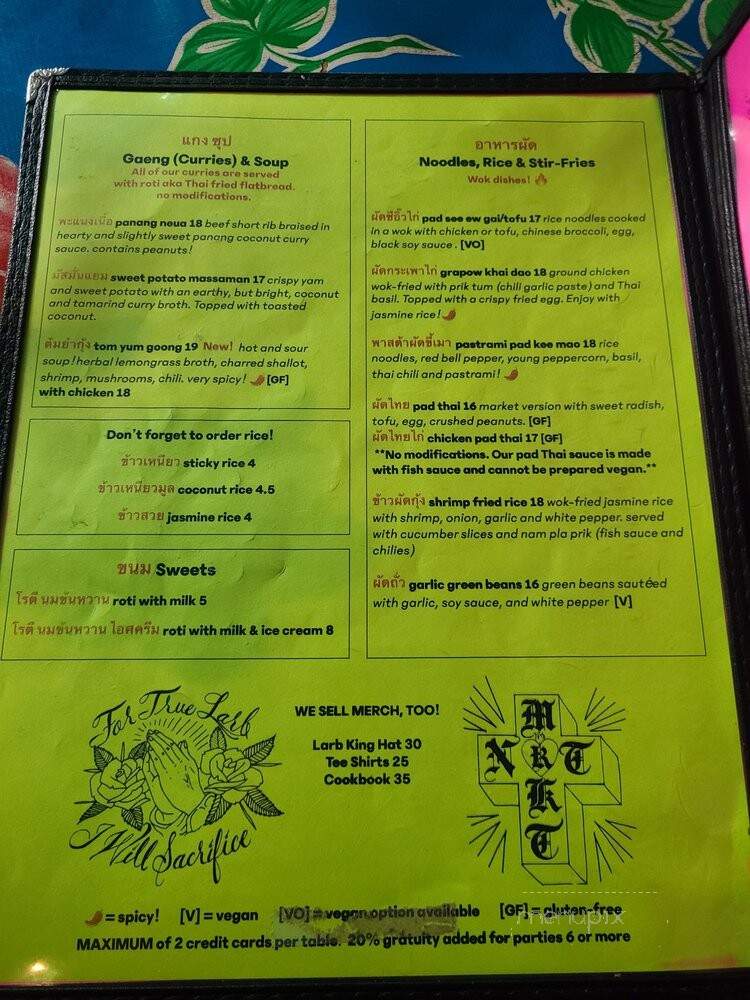 แกง ซุป
Gaeng (Curries) & Soup
All of our curries are served
with roti aka Thai fried flatbread.
no modifications.
พะแนงเนื้อ panang neua 18 beef short rib braised in
hearty and slightly sweet panang coconut curry
sauce. contains peanuts!
มัสมั่นแยม sweet potato massaman 17 crispy yam
and sweet potato with an earthy, but bright, coconut
and tamarind curry broth. Topped with toasted
coconut.
ต้มยำกุ้ง tom yum goong 19 New! hot and sour
soup! herbal lemongrass broth, charred shallot,
shrimp, mushrooms, chili. very spicy! 🌶️ [GF]
with chicken 18
Don't forget to order rice!
ข้าวเหนียว sticky rice 4
ข้าวเหนียวมูล coconut rice 4.5
ข้าวสวย jasmine rice 4
ขนม Sweets
โรตี นมข้นหวาน roti with milk 5
โรตี นมข้นหวาน ไอศครีม roti with milk & ice cream 8
อาหารผัด
Noodles, Rice & Stir-Fries
Wok dishes! 🔥
ผัดซีอิ๊วไก่ pad see ew gai/tofu 17 rice noodles cooked
in a wok with chicken or tofu, chinese broccoli, egg,
black soy sauce . [VO]
ผัดกระเพาไก่ grapow khai dao 18 ground chicken
wok-fried with prik tum (chili garlic paste) and Thai
basil. Topped with a crispy fried egg. Enjoy with
jasmine rice! 🌶️
พาสต้าผัดขี้เมา pastrami pad kee mao 18 rice
noodles, red bell pepper, young peppercorn, basil,
thai chili and pastrami! 🌶️
ผัดไทย pad thai 16 market version with sweet radish,
tofu, egg, crushed peanuts. [GF]
ผัดไทยไก่ chicken pad thai 17 [GF]
**No modifications. Our pad Thai sauce is made
with fish sauce and cannot be prepared vegan.**
ข้าวผัดกุ้ง shrimp fried rice 18 wok-fried jasmine rice
with shrimp, onion, garlic and white pepper. served
with cucumber slices and nam pla prik (fish sauce and
chilies)
ผัดถั่ว garlic green beans 16 green beans sautéed
with garlic, soy sauce, and white pepper [V]
For True Larb
I Will Sacrifice
WE SELL MERCH, TOO!
Larb King Hat 30
Tee Shirts 25
Cookbook 35
M
N R T
K
T
🌶️ = spicy! [V] = vegan [VO] = vegan option available [GF] = gluten-free
menupix
MAXIMUM of 2 credit cards per table. 20% gratuity added for parties 6 or more